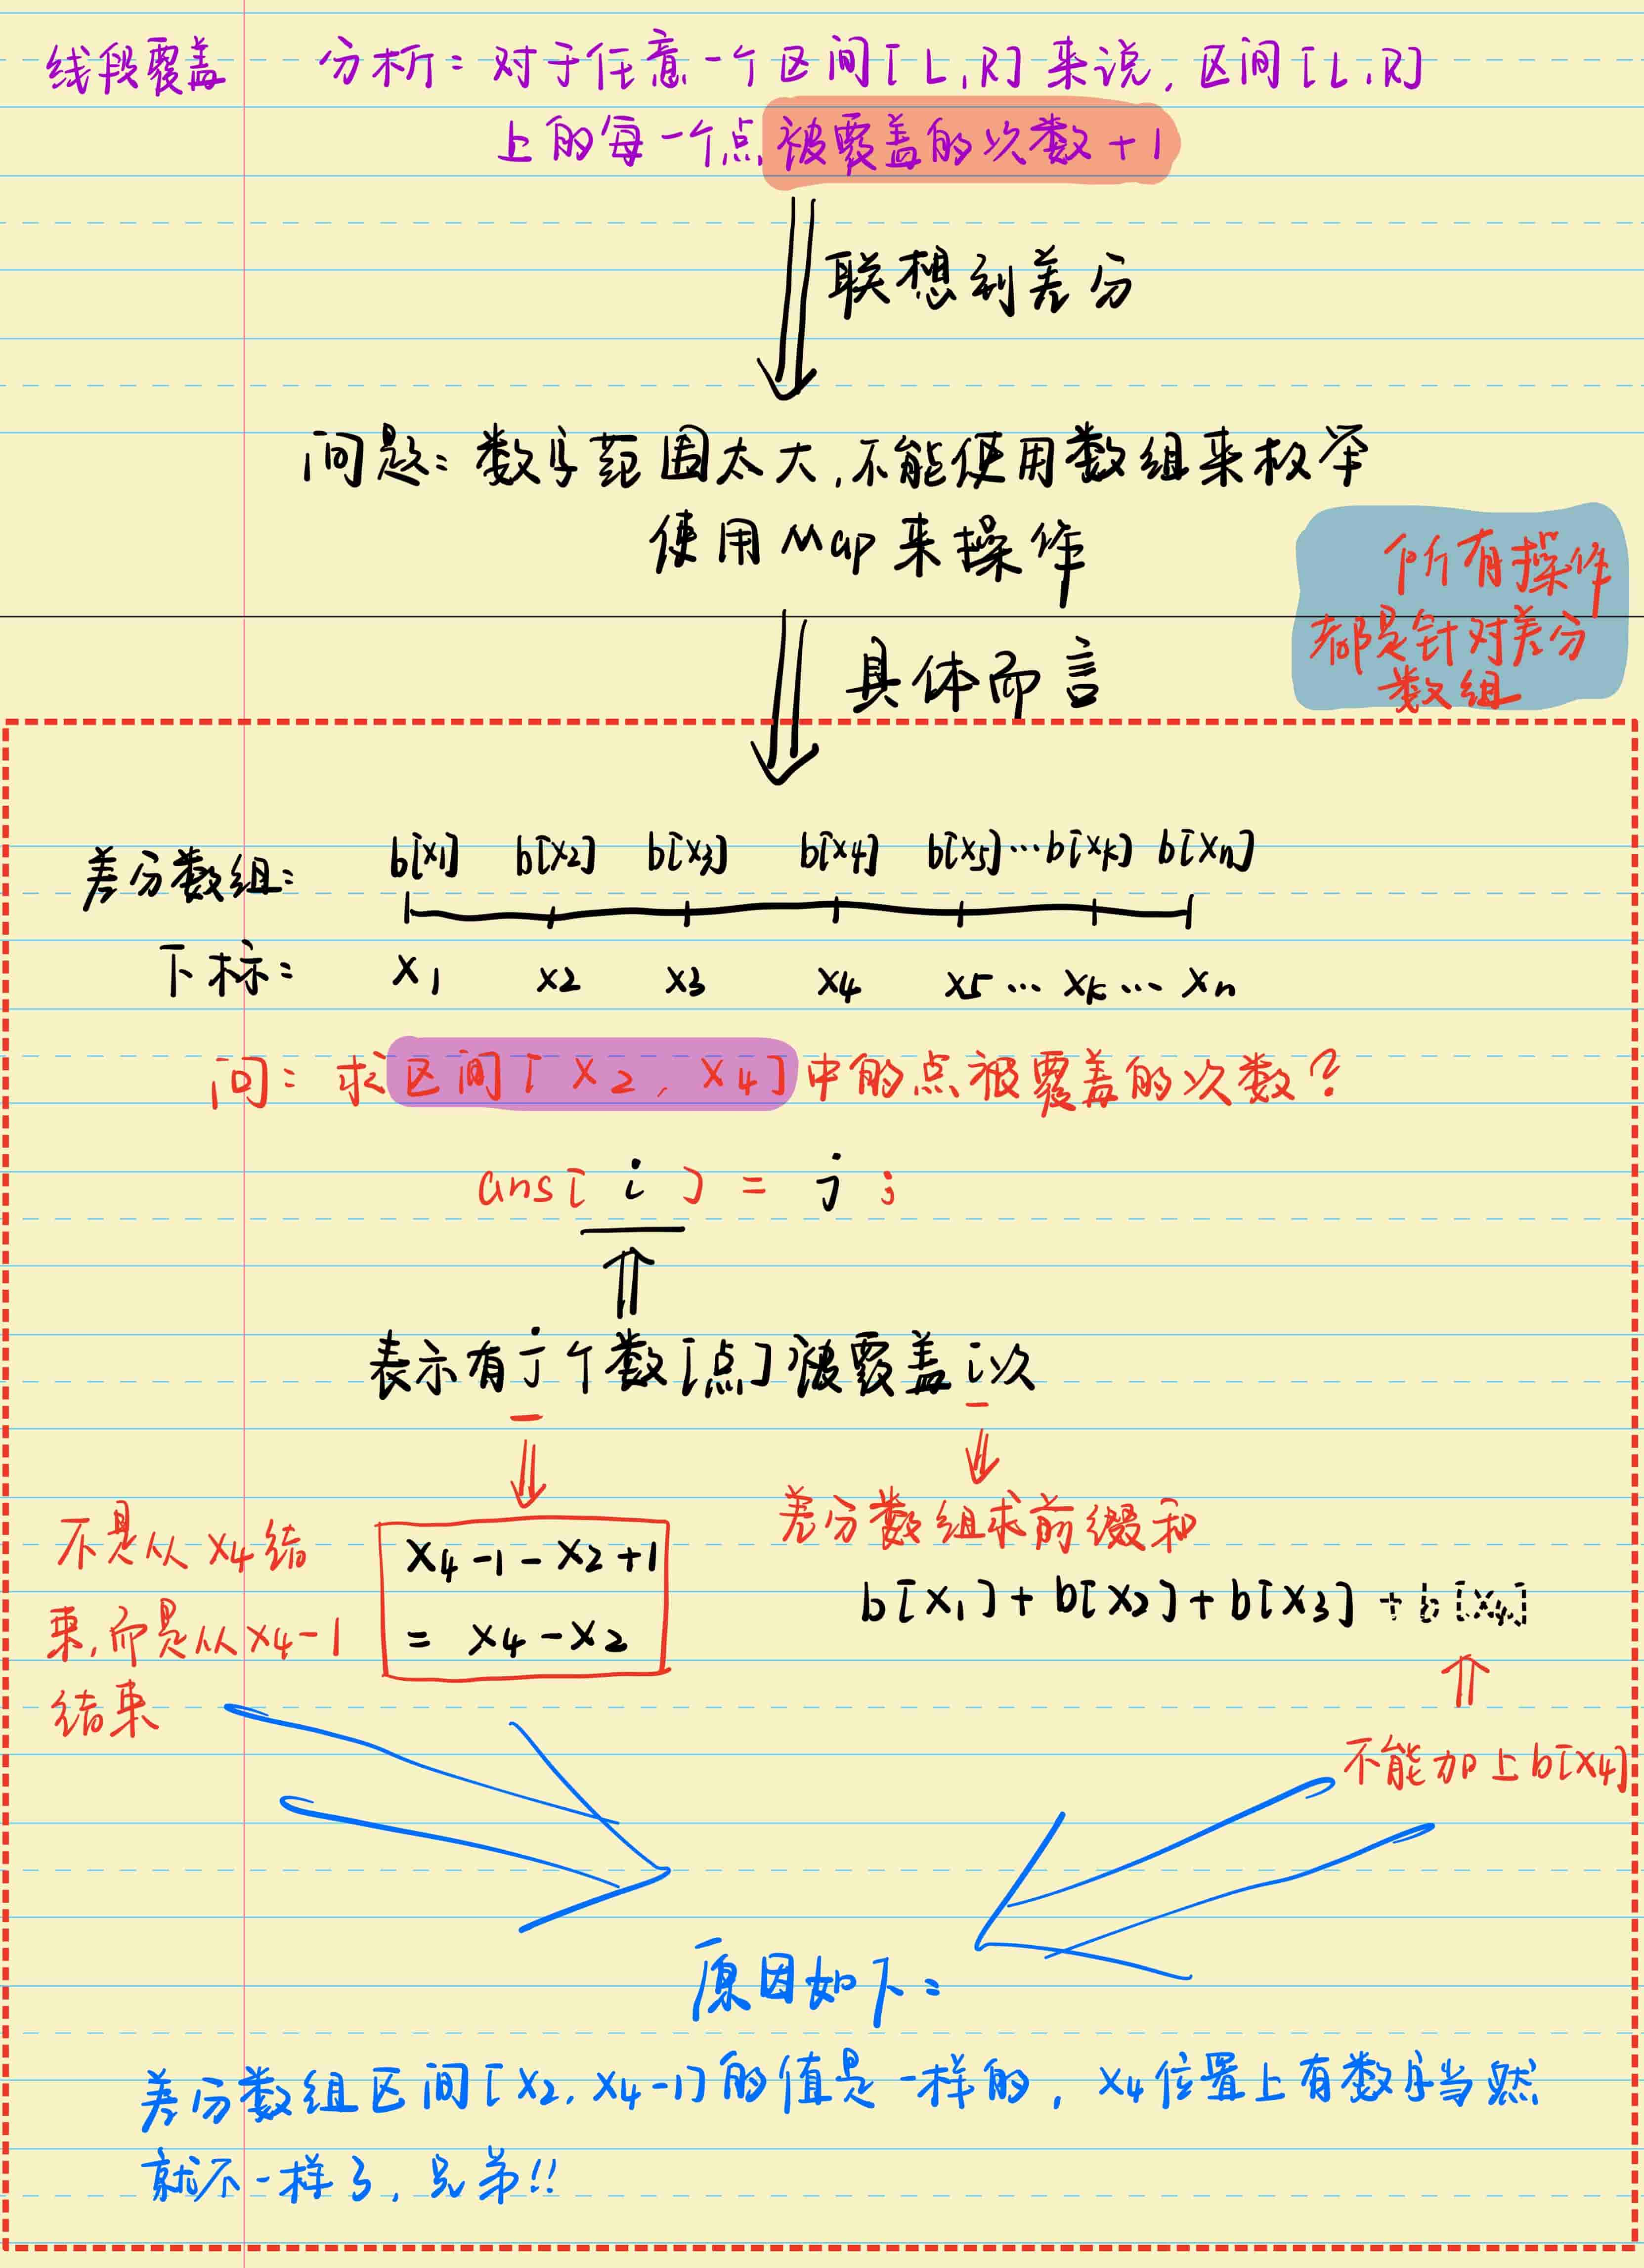 线段覆盖 分析：对于任意一个区间[L,R]来说，区间[L,R]
上的每一个点被覆盖的次数+1
联想到差分
问题：数字范围太大，不能使用数组来枚举
使用Map来操作
所有操作
都是针对差分
数组
具体而言
差分数组： b[x1] b[x2] b[x3] b[x4] b[x5]…b[xk] b[xn]
下标： x1 x2 x3 x4 x5 … xk … xn
问：求区间[x2, x4]中的点被覆盖的次数？
ans[i] = j;
表示有j个数[点]被覆盖i次
不是从x4结
束，而是从x4-1
结束
x4-1-x2+1
= x4-x2
差分数组求前缀和
b[x1]+b[x2]+b[x3]+b[x4]
不能加上b[x4]
原因如下：
差分数组区间[x2, x4-1]的值是一样的，x4位置上有数字当然
就不一样了，兄弟!!